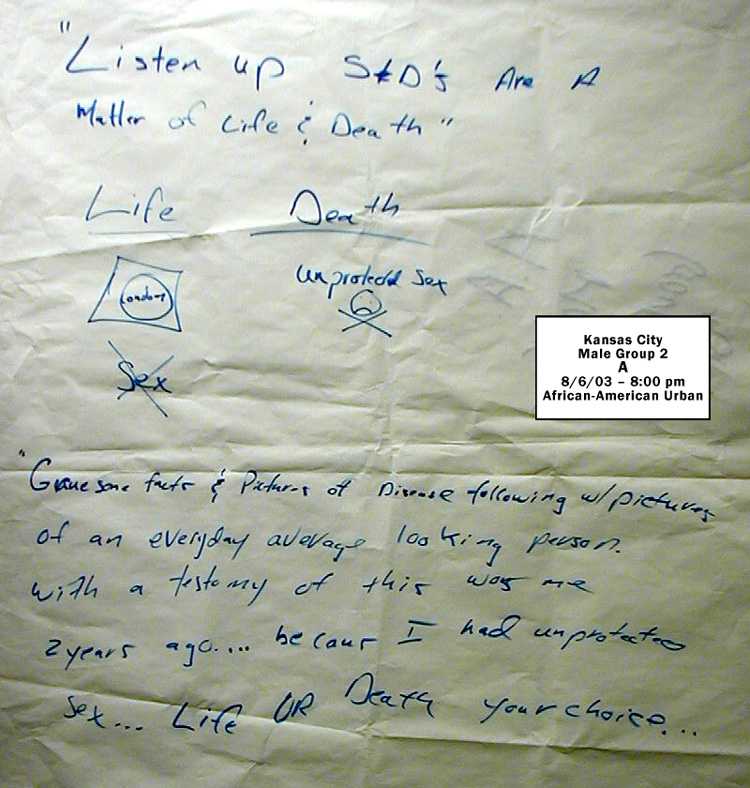 "Listen up StD's Are A
Matter of Life & Death"
Life Death
Condom
unprotected Sex
Sex
Kansas City
Male Group 2
A
8/6/03 – 8:00 pm
African-American Urban
"Gruesome facts & Pictures of Disease following w/ pictures
of an everyday average looking person.
with a testomy of this was me
2 years ago.... becaus I had unprotected
Sex... Life OR Death your choice...